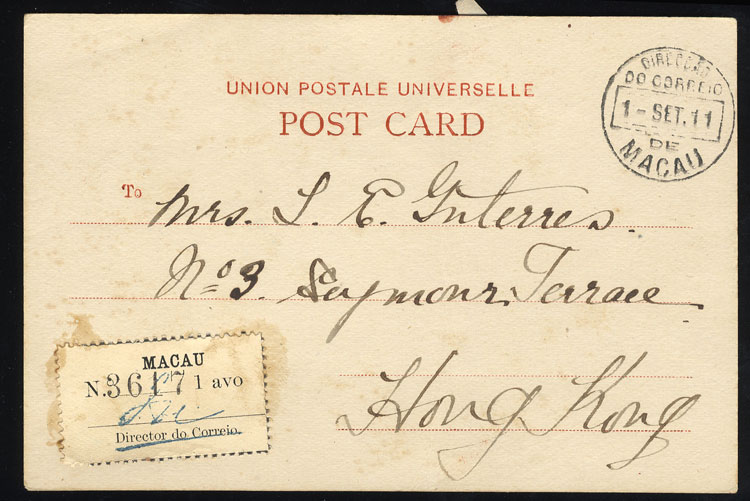 UNION POSTALE UNIVERSELLE
POST CARD
DIRECÇÃO
DO CORREIO
1-SET.11
DE
MACAU
To Mrs. L. E. Guterres.
Nº 3. Seymour Terrace
Hong Kong
MACAU
N. 3617 1 avo
Director do Correio.